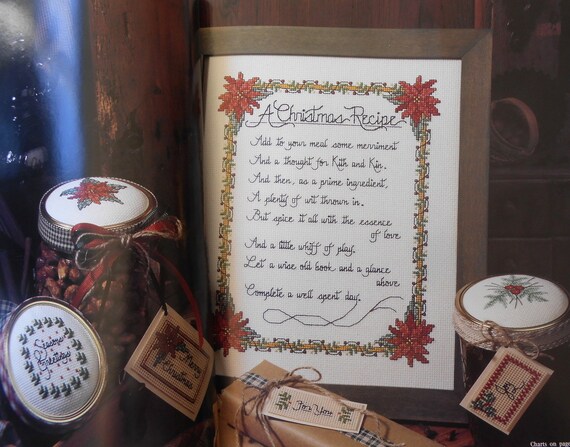 A Christmas Recipe
Add to your meal some merriment
And a thought for Kith and Kin,
And then, as a prime ingredient,
A plenty of wit thrown in.
But spice it all with the essence
of love
And a little whiff of play,
Let a wise old book and a glance
above
Complete a well spent day.
Seasons
Greetings
Merry
Christmas
For You
Charts on page